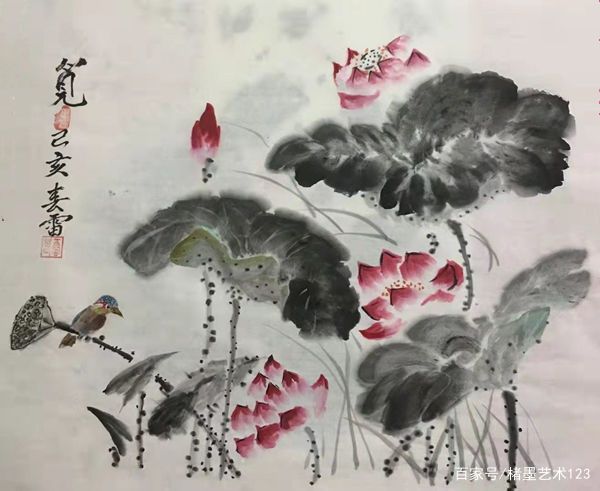 己亥春雷
百家号/楮墨艺术123